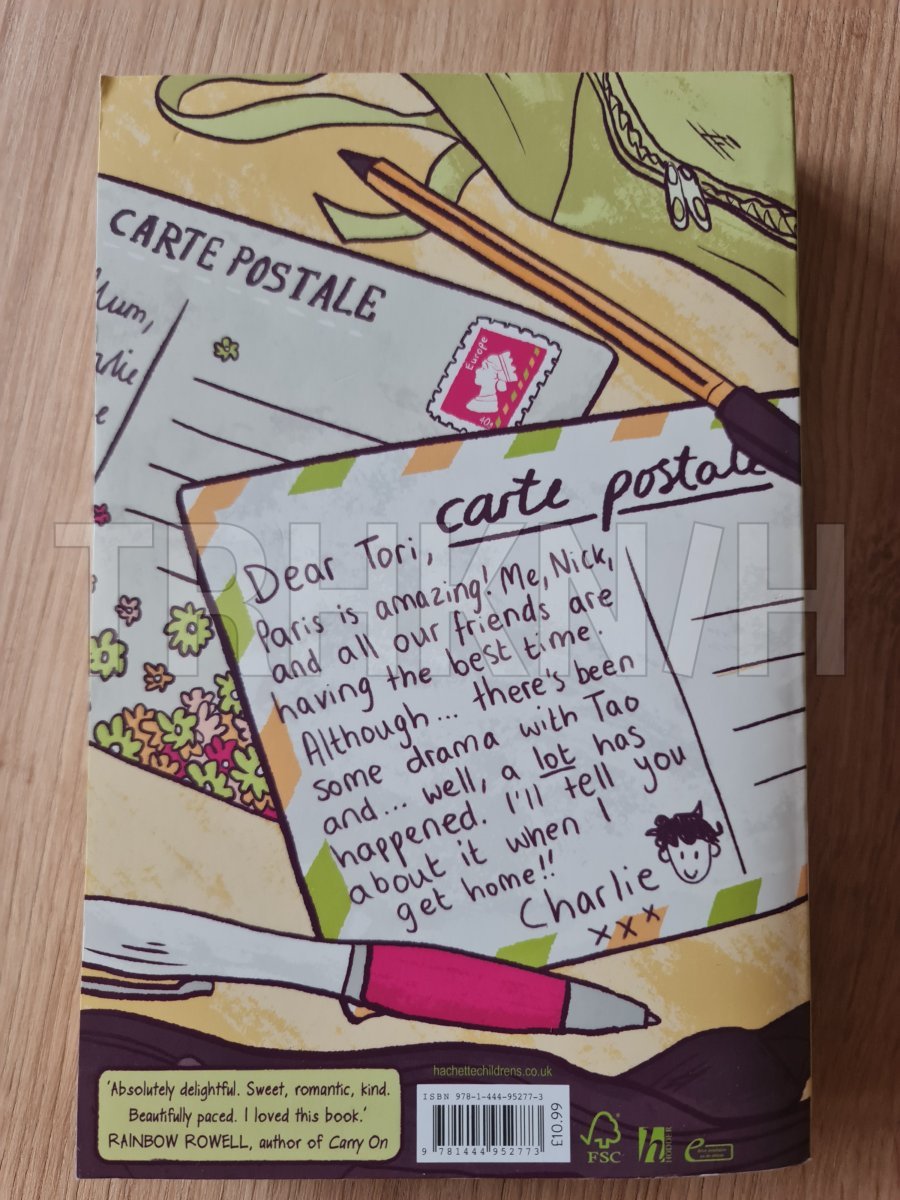 CARTE POSTALE
Mum,
Europe
carte postale
Dear Tori,
Paris is amazing! Me, Nick,
and all our friends are
having the best time.
Although... there's been
some drama with Tao
and... well, a lot has
happened. I'll tell you
about it when I
get home!!
Charlie
xxx
TRHKN/H
hachettechildrens.co.uk
'Absolutely delightful. Sweet, romantic, kind.
Beautifully paced. I loved this book.'
RAINBOW ROWELL, author of Carry On
ISBN 978-1-444-95277-3
9 781444 952773
£10.99
FSC
h
HODDER
e